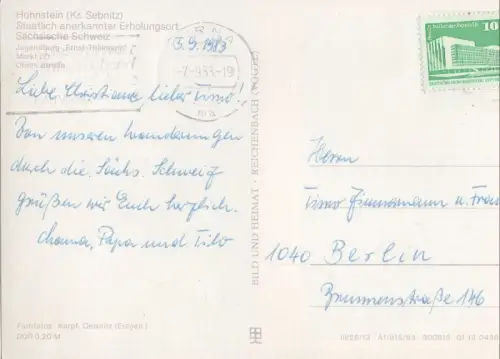 Hohnstein (Kr. Sebnitz)
Staatlich anerkannter Erholungsort
Sächsische Schweiz
Jugendburg „Ernst Thälmann“
Markt
Obere Straße
3.9.1983
-7.-9.83-19
10
Liebe Christiane, lieber Timo!
Von unseren Wanderungen
durch die Sächs. Schweiz
grüßen wir Euch herzlich.
Mama, Papa und Tilo
Herrn
Timo Zimmermann u. Frau
1040 Berlin
Brunnenstraße 146
BILD UND HEIMAT · REICHENBACH (VOGTL)
Farbfotos: Karpf, Oelsnitz (Erzgeb.)
A1/B15/83
01 12